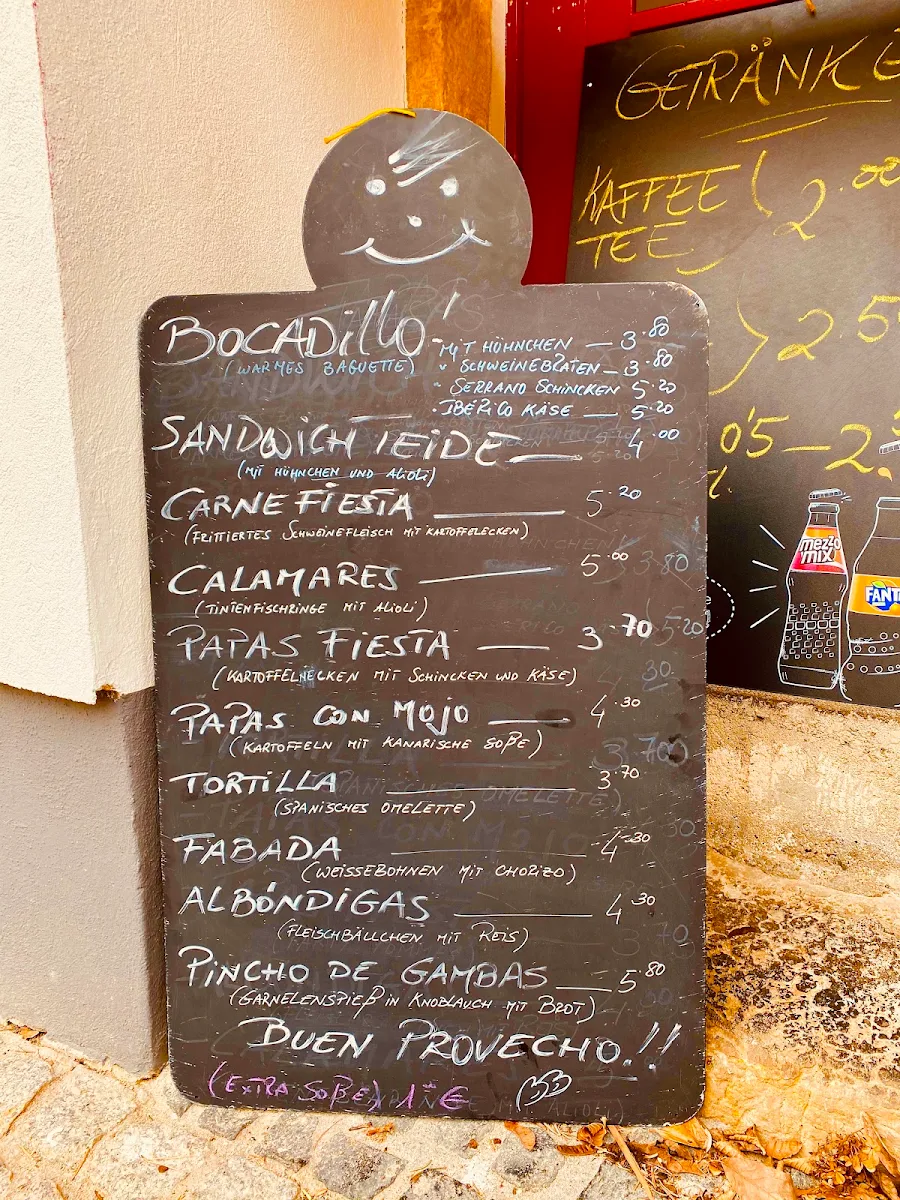 BOCADILLO'
(WARMES BAGUETTE)
- MIT HÜHNCHEN — 3.80
" SCHWEINEBRATEN — 3.80
" SERRANO SCHINCKEN 5.20
. IBÉRICO KÄSE — 5.20
SANDWICH TEIDE — 4.00
(MIT HÜHNCHEN UND ALIOLI)
CARNE FIESTA — 5.20
(FRITTIERTES SCHWEINEFLEISCH MIT KARTOFFELECKEN)
CALAMARES — 5.00
(TINTENFISCHRINGE MIT ALIOLI)
PAPAS FIESTA — 3.70
(KARTOFFELNECKEN MIT SCHINCKEN UND KÄSE)
PAPAS CON MOJO — 4.30
(KARTOFFELN MIT KANARISCHE SOßE)
TORTILLA — 3.70
(SPANISCHES OMELETTE)
FABADA — 4.30
(WEISSEBOHNEN MIT CHORIZO)
ALBÓNDIGAS — 4.30
(FLEISCHBÄLLCHEN MIT REIS)
PINCHO DE GAMBAS — 5.80
(GARNELENSPIEß IN KNOBLAUCH MIT BROT)
BUEN PROVECHO.!!
(EXTRA SOßE) 1 €
GETRÄNKE
KAFFEE
TEE
2.00
2.5
0'5 — 2.
mezzo
mix
FANT